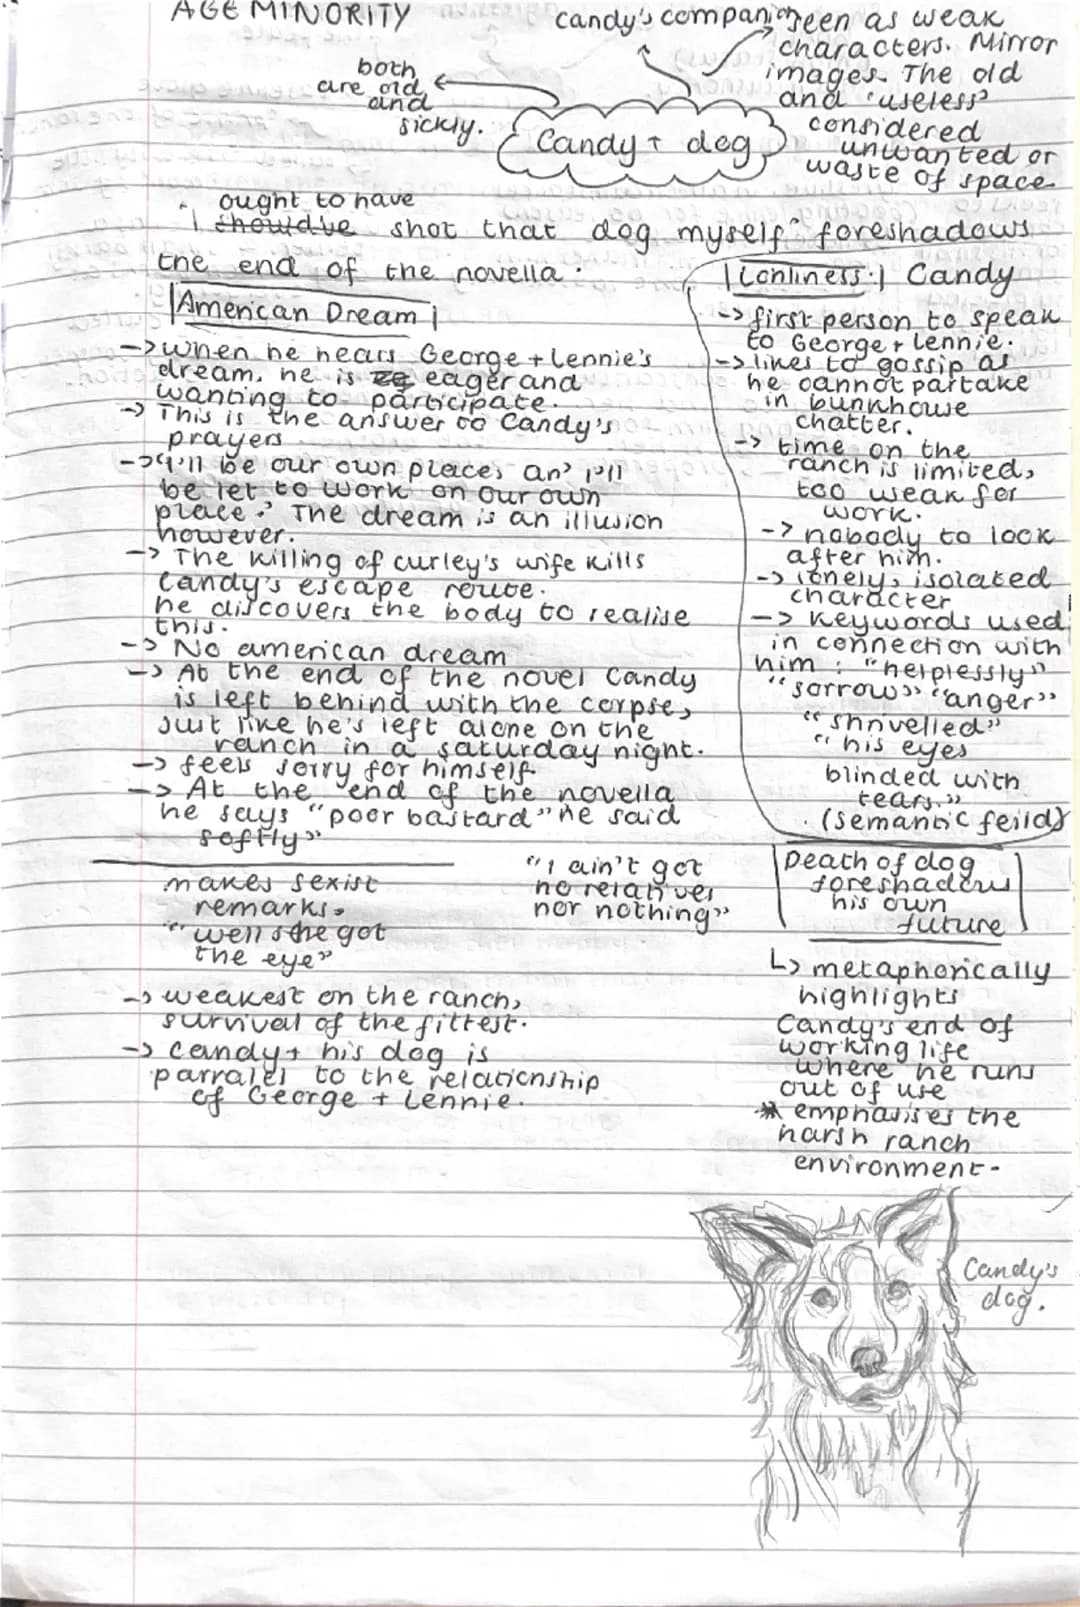 AGE MINORITY
candy's companion
seen as weak
characters. Mirror
images. The old
and 'useless'
considered
unwanted or
waste of space
both
are old
and
sickly.
Candy + dog
ought to have
'I shouldve shot that dog myself' foreshadows
the end of the novella.
American Dream
-> when he hears George + Lennie's
dream, he is eager and
wanting to participate.
-> This is the answer to Candy's
prayers
-> "I'll be our own place, an' I'll
be let to work on our own
place.' The dream is an illusion
however.
-> The killing of curley's wife kills
Candy's escape route.
he discovers the body to realise
this.
-> No american dream
-> At the end of the novel Candy
is left behind with the corpse,
Just like he's left alone on the
ranch in a saturday night.
-> feels sorry for himself.
-> At the end of the novella
he says "poor bastard" he said
softly"
makes sexist
remarks.
"well she got
the eye"
-> weakest on the ranch,
survival of the fittest.
-> Candy + his dog is
parralel to the relationship
of George + Lennie.
"I ain't got
no relatives
nor nothing"
Lonliness: Candy
-> first person to speak
to George + Lennie.
-> likes to gossip as
he cannot partake
in bunkhouse
chatter.
-> time on the
ranch is limited,
too weak for
work.
-> nobody to look
after him.
-> lonely, isolated
character
-> Keywords used
in connection with
him : "helplessly"
"sorrow" "anger"
"shrivelled"
"his eyes
blinded with
tears."
(semantic feild)
Death of dog
foreshadow
his own
future
↳ metaphorically
highlights
Candy's end of
working life
where he runs
out of use
* emphasises the
harsh ranch
environment-
Candy's
dog.